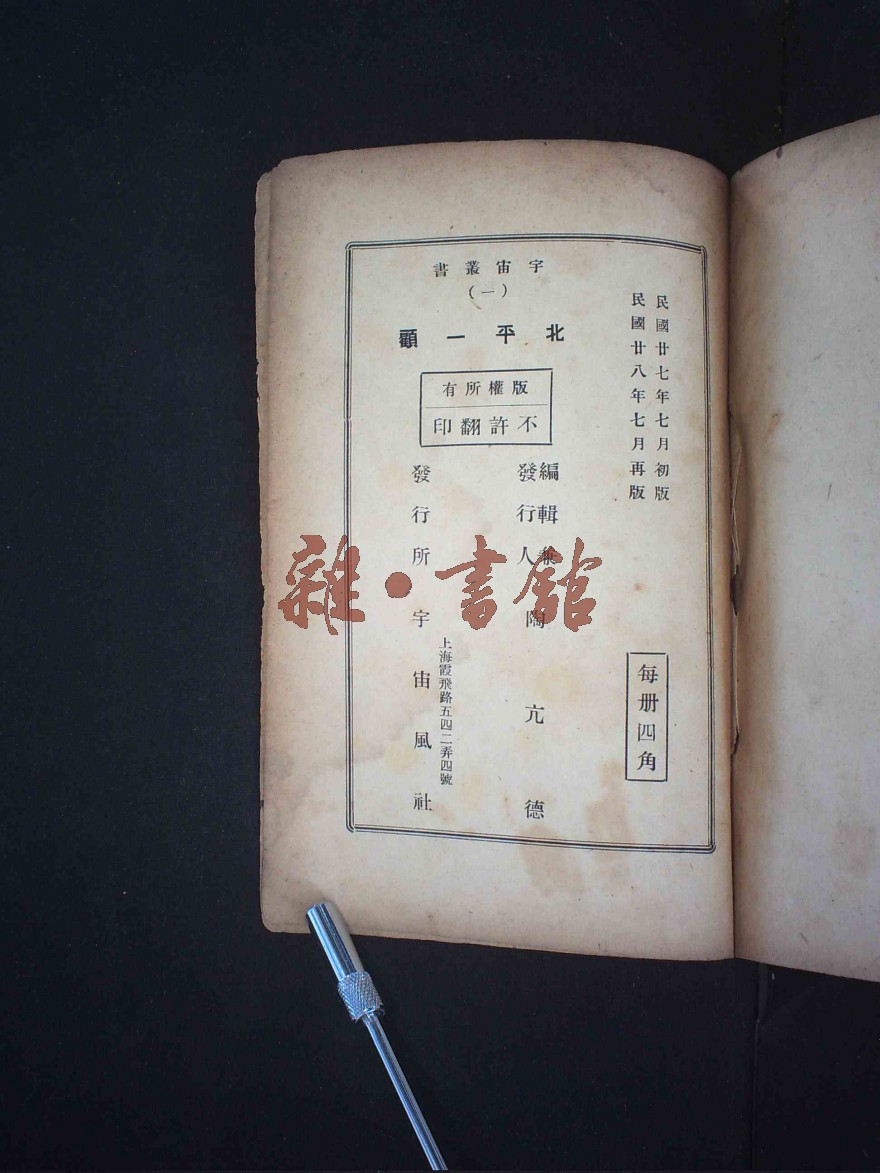 民國廿七年七月初版
民國廿八年七月再版
宇宙叢書
(一)
北平一顧
版權所有
不許翻印
編輯兼
發行人 陶亢德
發行所 宇宙風社
上海霞飛路五四二弄四號
每册四角
雜·書館